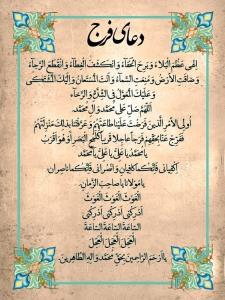 دعای فرج
اِلهی عَظُمَ الْبَلاءُ وَبَرِحَ الْخَفآءُ وَانْكَشَفَ الْغِطآءُ وَانْقَطَعَ الرَّجآءُ
وَضاقَتِ الْاَرْضُ وَمُنِعَتِ السَّمآءُ وَاَنْتَ الْمُسْتَعانُ وَاِلَيْكَ الْمُشْتَكی
وَعَلَيْكَ الْمُعَوَّلُ فِی الشِّدَّةِ وَالرَّخآءِ
اَللّهُمَّ صَلِّ عَلی مُحَمَّدٍ وَآلِ مُحَمَّدٍ
اُولِی الْاَمْرِ الَّذينَ فَرَضْتَ عَلَيْنا طاعَتَهُمْ وَعَرَّفْتَنا بِذلِكَ مَنْزِلَتَهُمْ
فَفَرِّجْ عَنّا بِحَقِّهِمْ فَرَجاً عاجِلاً قَريباً كَلَمْحِ الْبَصَرِ اَوْ هُوَ اَقْرَبُ
يا مُحَمَّدُ يا عَلِیُّ يا عَلِیُّ يا مُحَمَّدُ
اِكْفِيانی فَاِنَّكُما كافِيانِ وَانْصُرانی فَاِنَّكُما ناصِرانِ
يا مَوْلانا يا صاحِبَ الزَّمانِ
الْغَوْثَ الْغَوْثَ الْغَوْثَ
اَدْرِكْنی اَدْرِكْنی اَدْرِكْنی
السّاعَةَ السّاعَةَ السّاعَةَ
الْعَجَلَ الْعَجَلَ الْعَجَلَ
يا اَرْحَمَ الرّاحِمينَ بِحَقِّ مُحَمَّدٍ وَآلِهِ الطّاهِرينَ